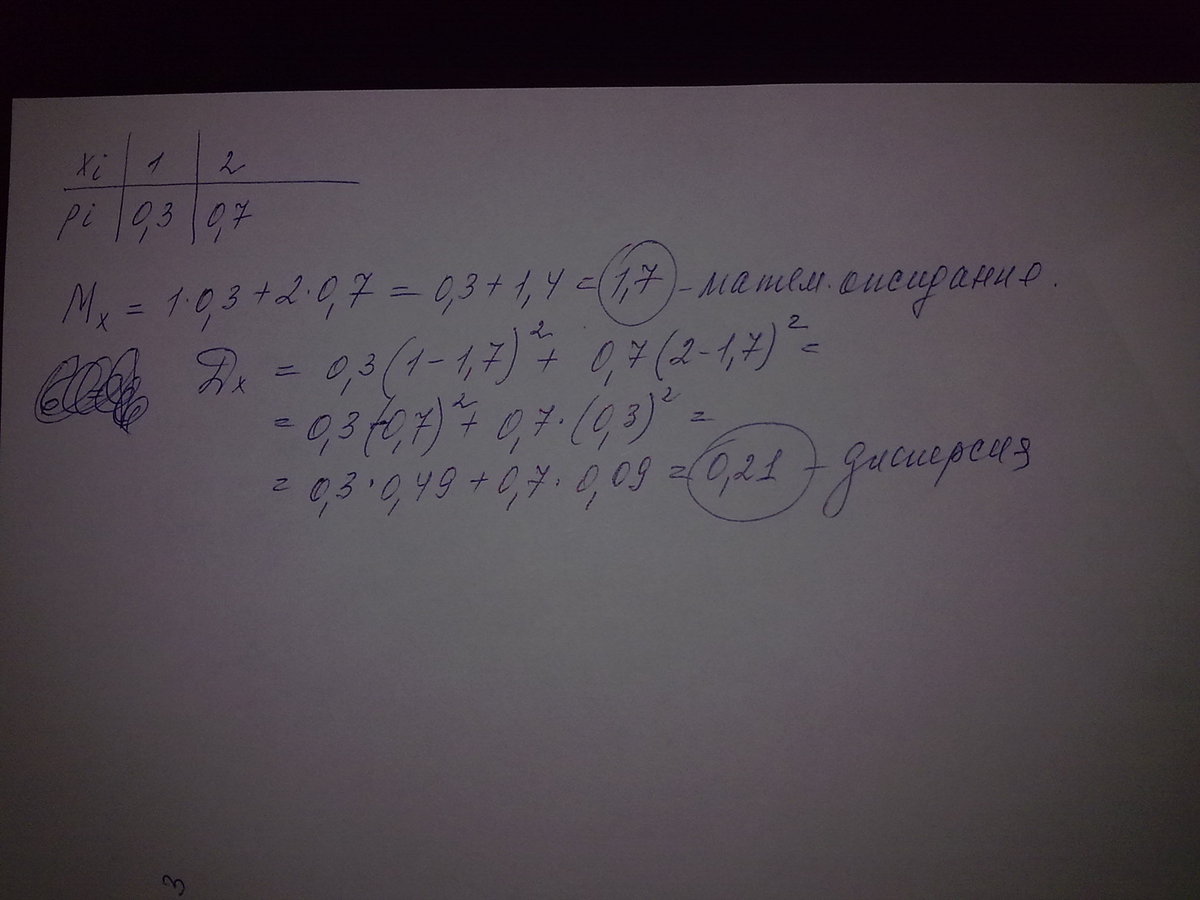 xi | 1 | 2
pi | 0,3 | 0,7
Mx = 1·0,3+2·0,7 = 0,3+1,4 = 1,7 - матем. ожидание.
Dx = 0,3(1-1,7)²+ 0,7(2-1,7)² =
= 0,3(-0,7)²+ 0,7·(0,3)² =
= 0,3·0,49+0,7·0,09 = 0,21 - дисперсия
3